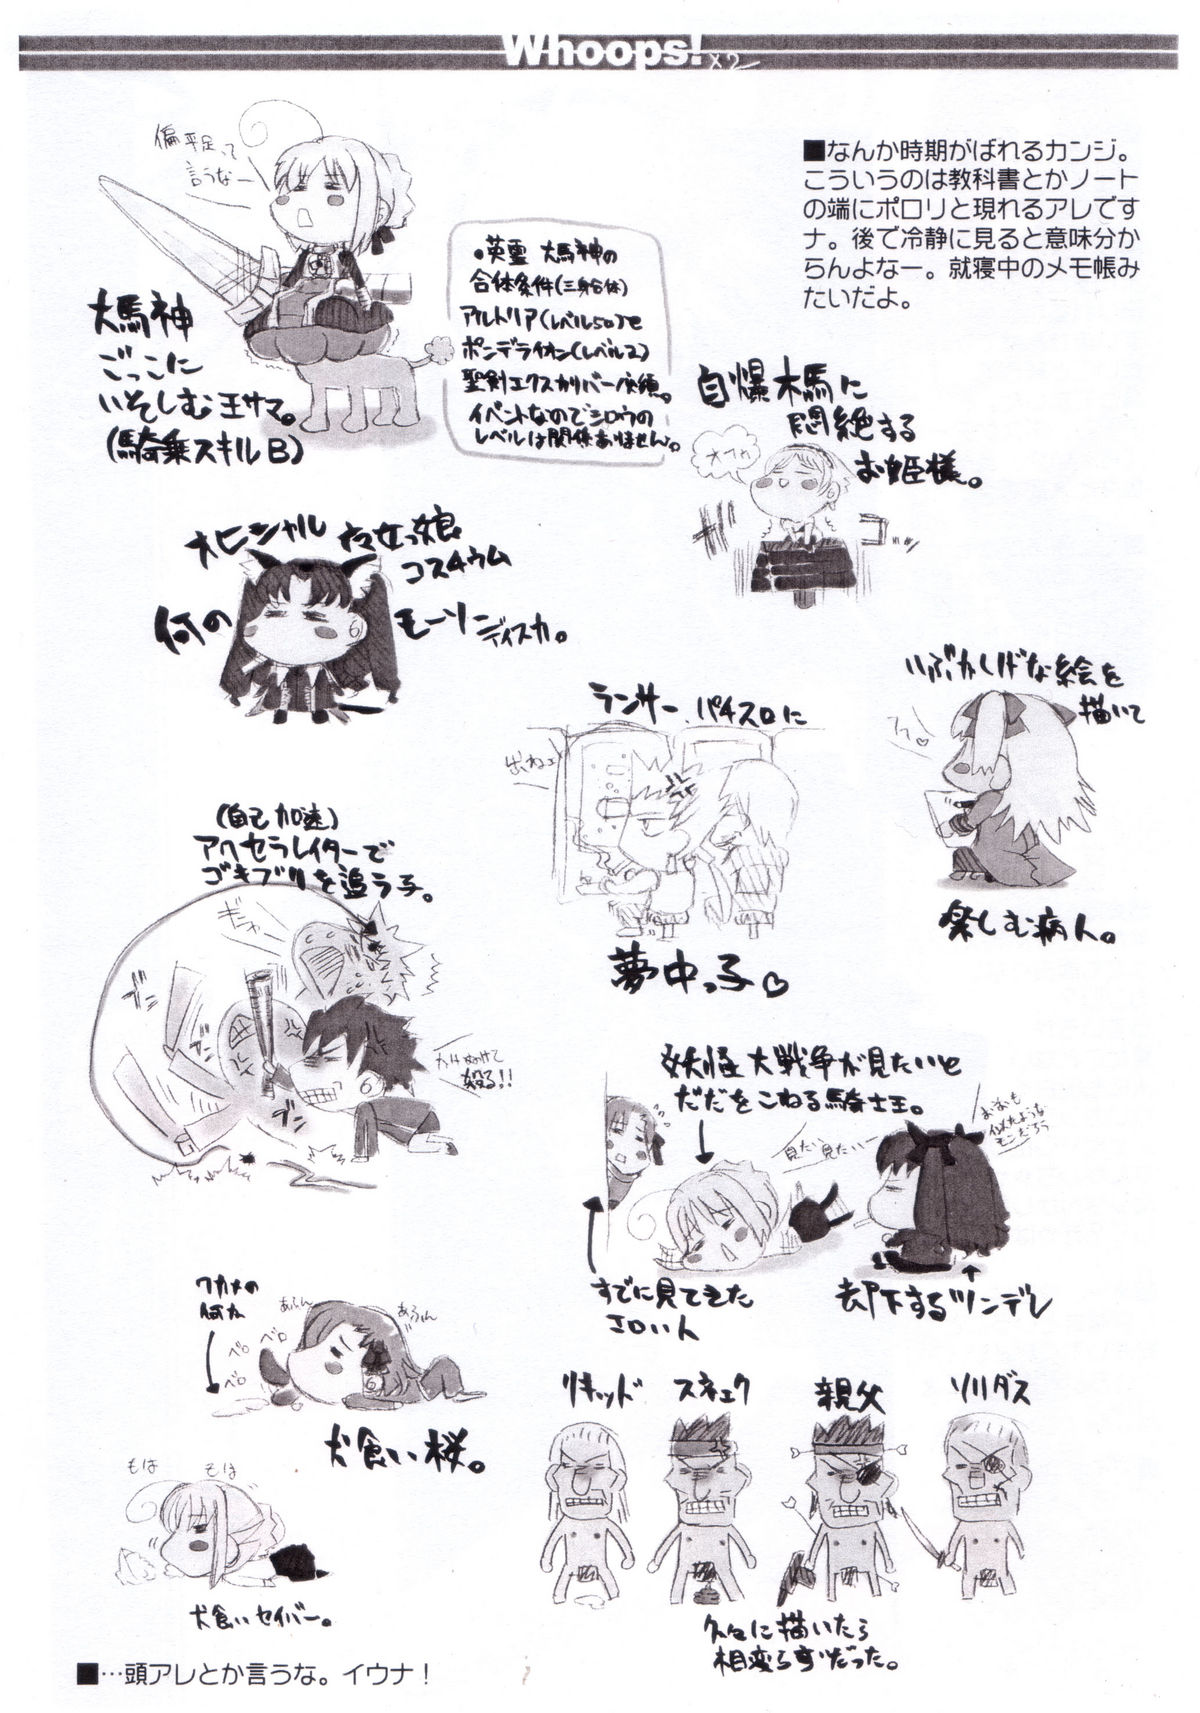 Whoops! ×2
■なんか時期がばれるカンジ。
こういうのは教科書とかノート
の端にポロリと現れるアレです
ナ。後で冷静に見ると意味分か
らんよなー。就寝中のメモ帳み
たいだよ。
偏平足って
言うなー
大馬神
ごっこに
いそしむ王サマ。
(騎乗スキルB)
。英霊 大馬神の
合体条件(三身合体)
アルトリア(レベル50)と
ポンデライオン(レベル2)
聖剣エクスカリバー必須。
イベントなのでシロウの
レベルは関係ありません。
自爆木馬に
悶絶する
お姫様。
オヒシャル
コスチウム
何の
モーソー
ディスカ。
ランサー、パチスロに
出ねェ
夢中っ子♡
いぶかしげな絵を
描いて
楽しむ病人。
(自己加速)
アクセラレイターで
ゴキブリを追う子。
ギシャァ
ブン
殺る!!
妖怪大戦争が見たいと
だだをこねる騎士王。
見たい見たいー
おまえも
似たような
モンだろう
すでに見てきた
エロい人
却下するツンデレ
ワカメの
何か
ベロ
ベロ
ベロ
あふん
あふん
犬食い桜。
もは
もは
犬食いセイバー。
リキッド
スネェク
親父
ソリダス
久々に描いたら
相変らずだった。
■…頭アレとか言うな。イウナ!